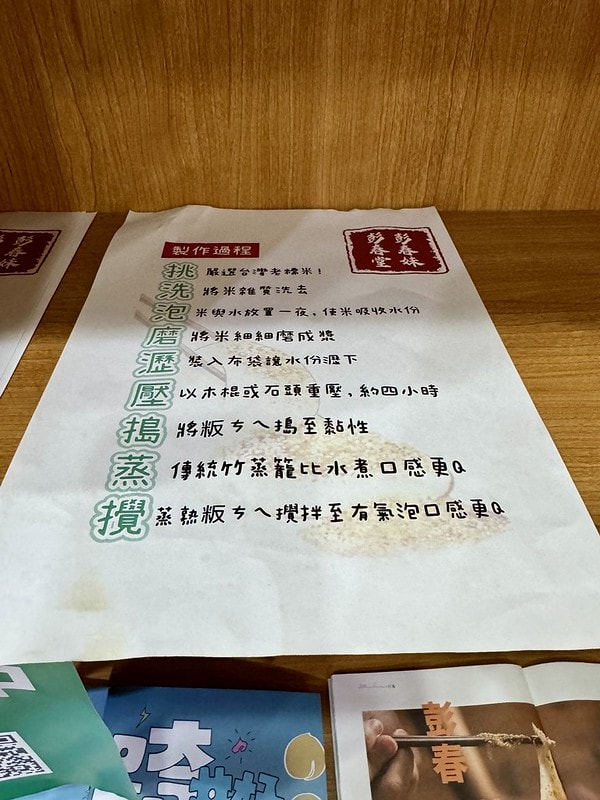 製作過程
彭春妹
彭春堂
挑 嚴選台灣老糯米!
洗 將米雜質洗去
泡 米與水放置一夜,使米吸收水份
磨 將米細細磨成漿
瀝 裝入布袋讓水份瀝下
壓 以木棍或石頭重壓,約四小時
搗 將粄ㄘㄟ搗至黏性
蒸 傳統竹蒸籠比水煮口感更Q
攪 蒸熟粄ㄘㄟ攪拌至有氣泡口感更Q
彭春